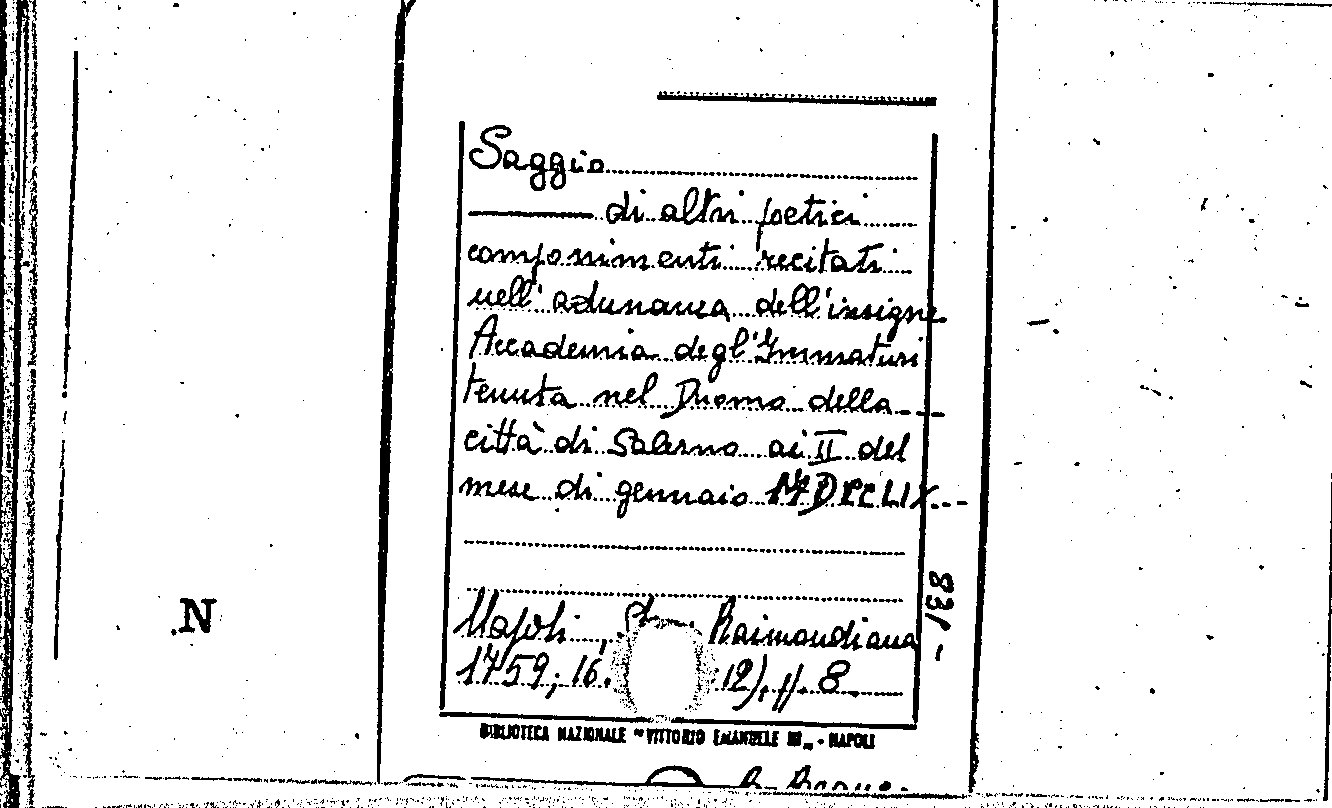 Saggio
di altri poetici
componimenti recitati
nell'adunanza dell'insigne
Accademia degl'Immaturi
tenuta nel Duomo della
città di Salerno ai II del
mese di gennaio MDCCLIX
Napoli, Raimondiana
1759; 16. 12), p. 8
831-
N
BIBLIOTECA NAZIONALE "VITTORIO EMANUELE III" - NAPOLI